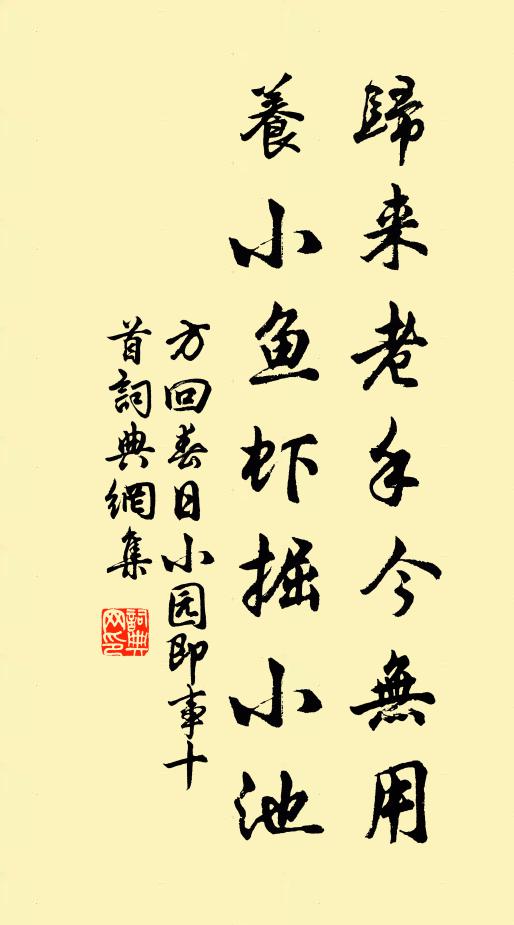 歸来老手今無用
養小鱼虾掘小池
方回春日小园即事十
首詞典網集
詞典
网印